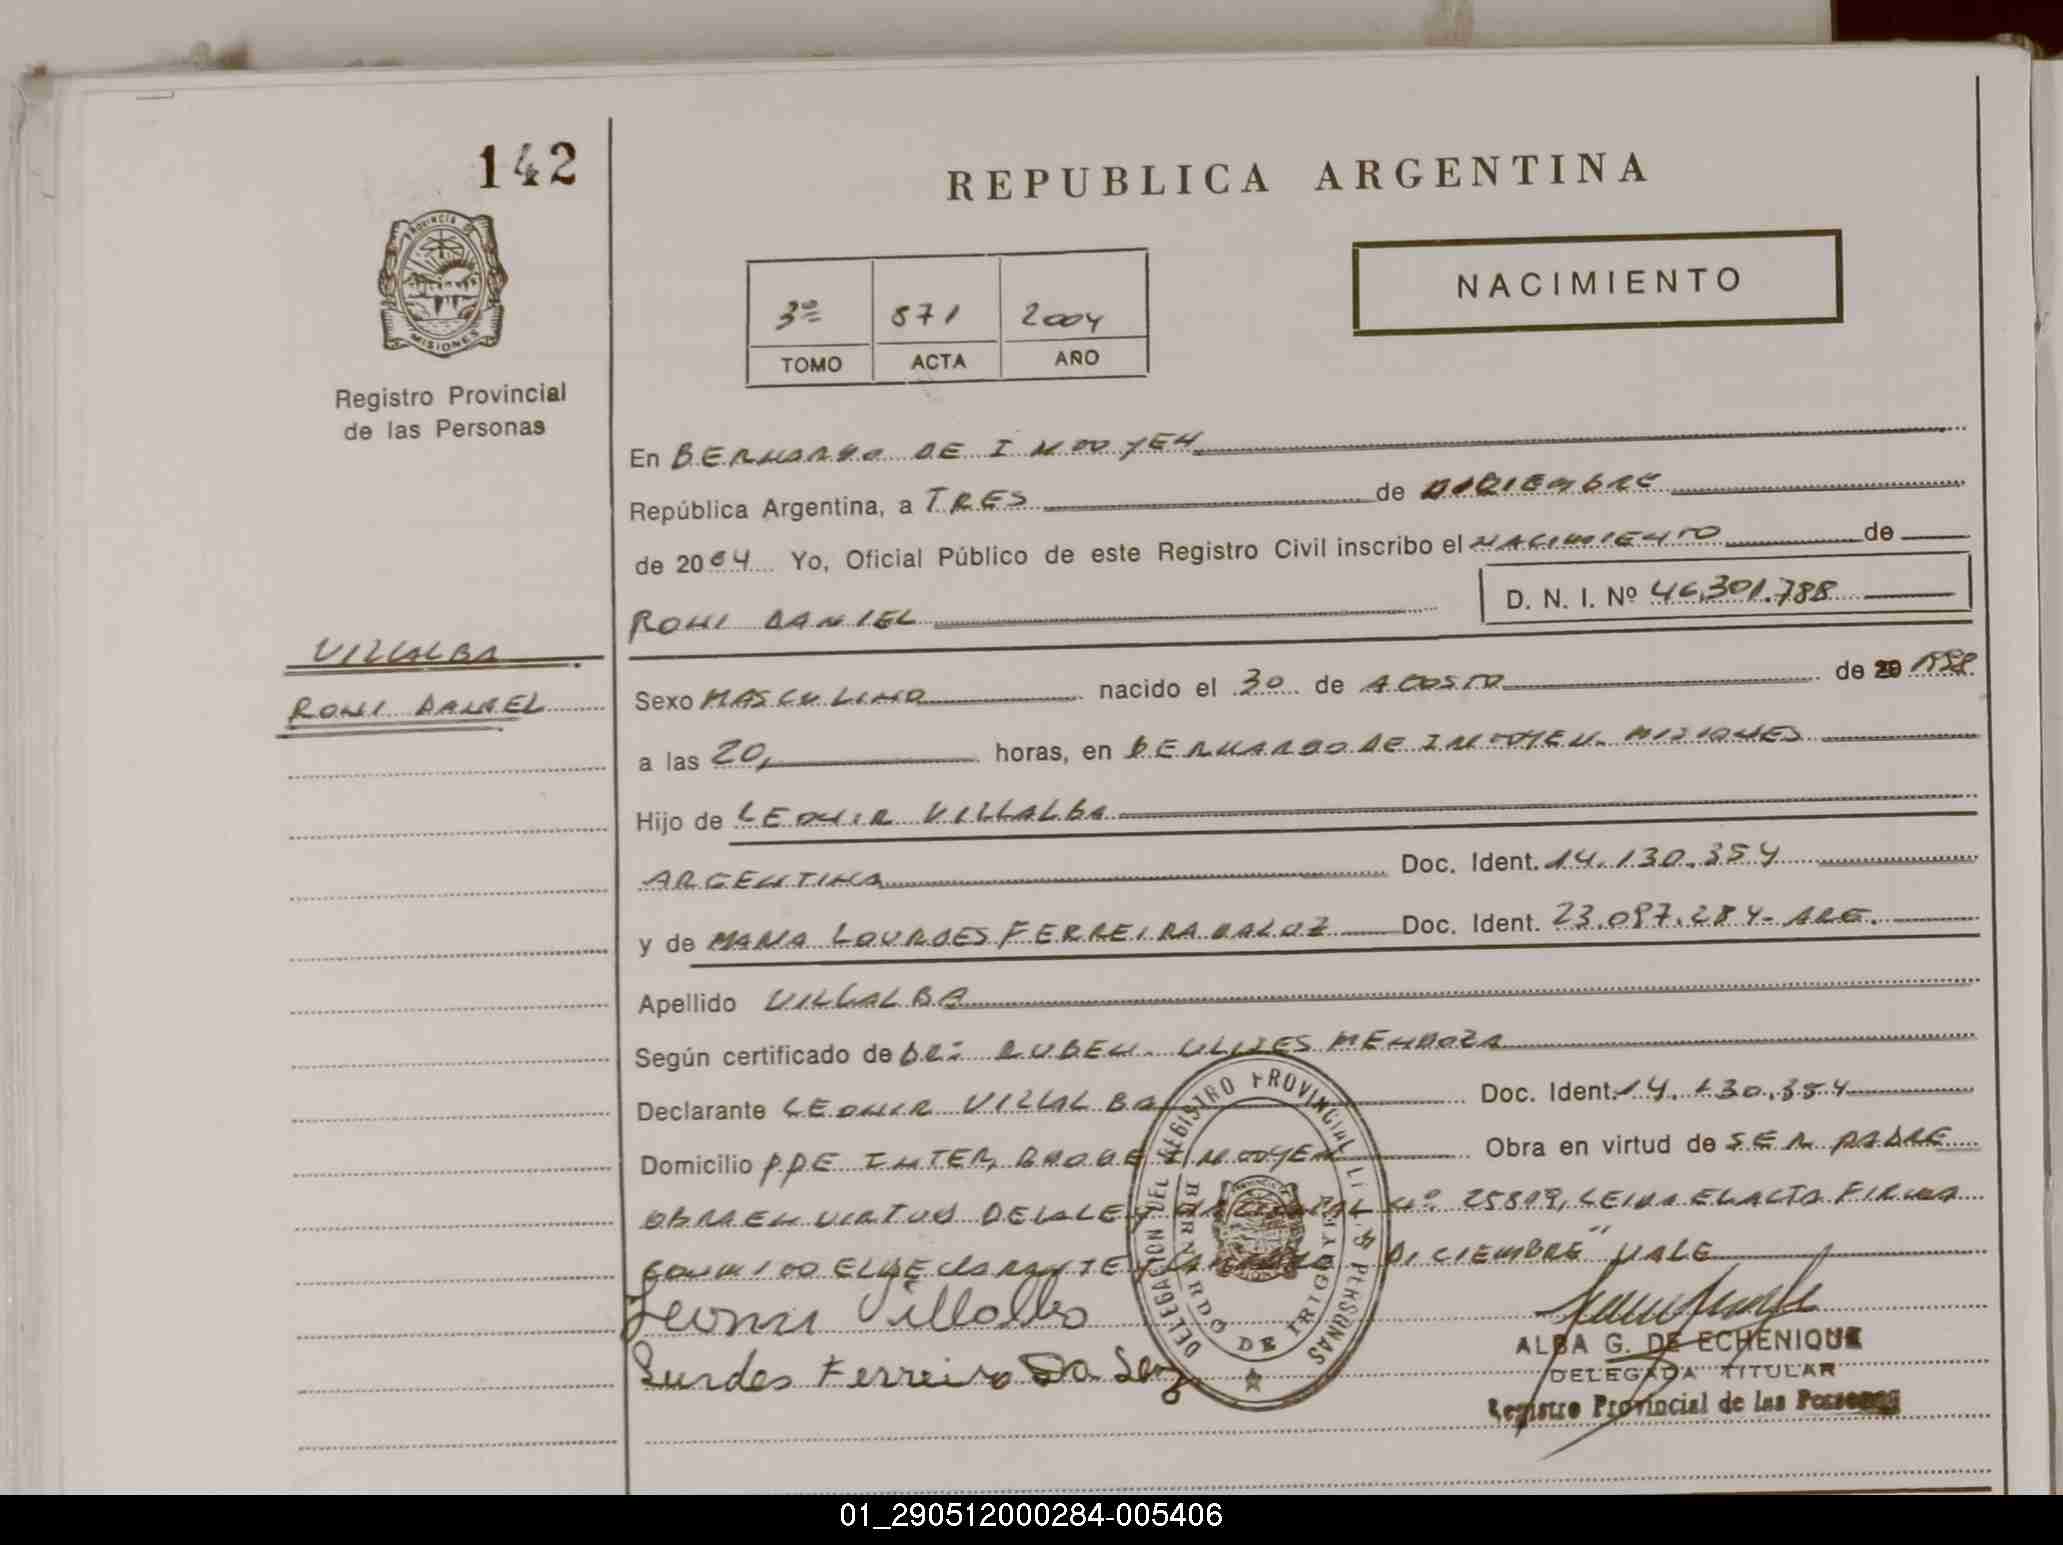 142
REPUBLICA ARGENTINA
PROVINCIA DE
MISIONES
NACIMIENTO
3º 871 2004
TOMO ACTA AÑO
Registro Provincial
de las Personas
En BERNARDO DE IRIGOYEN
República Argentina, a TRES de DICIEMBRE
de 2004 Yo, Oficial Público de este Registro Civil inscribo el NACIMIENTO de
RONI DANIEL D. N. I. Nº 46.301.788
VILLALBA
RONI DANIEL
Sexo MASCULINO nacido el 30 de AGOSTO de 20 1998
a las 20, horas, en BERNARDO DE IRIGOYEN. MISIONES
Hijo de LEONIR VILLALBA
ARGENTINA Doc. Ident. 14.130.354
y de MARIA LOURDES FERREIRA DA LUZ Doc. Ident. 23.097.284- ARG.
Apellido VILLALBA
Según certificado de DR: RUBEN ULISES MENDOZA
Declarante LEONIR VILLALBA Doc. Ident. 14.130.354
Domicilio PJE INTER, BDO DE IRIGOYEN Obra en virtud de SER PADRE
OBRA EN VIRTUD DE LA LEY NACIONAL Nº 25819, LEIDA EL ACTA FIRMA
CONMIGO EL DECLARANTE DICIEMBRE" VALE
Leonir Villalba
Lurdes Ferreira Da
DELEGACION DEL REGISTRO PROVINCIAL DE LAS PERSONAS
BERNARDO DE IRIGOYEN
ALBA G. DE ECHENIQUE
DELEGADA TITULAR
Registro Provincial de las Personas
01_290512000284-005406